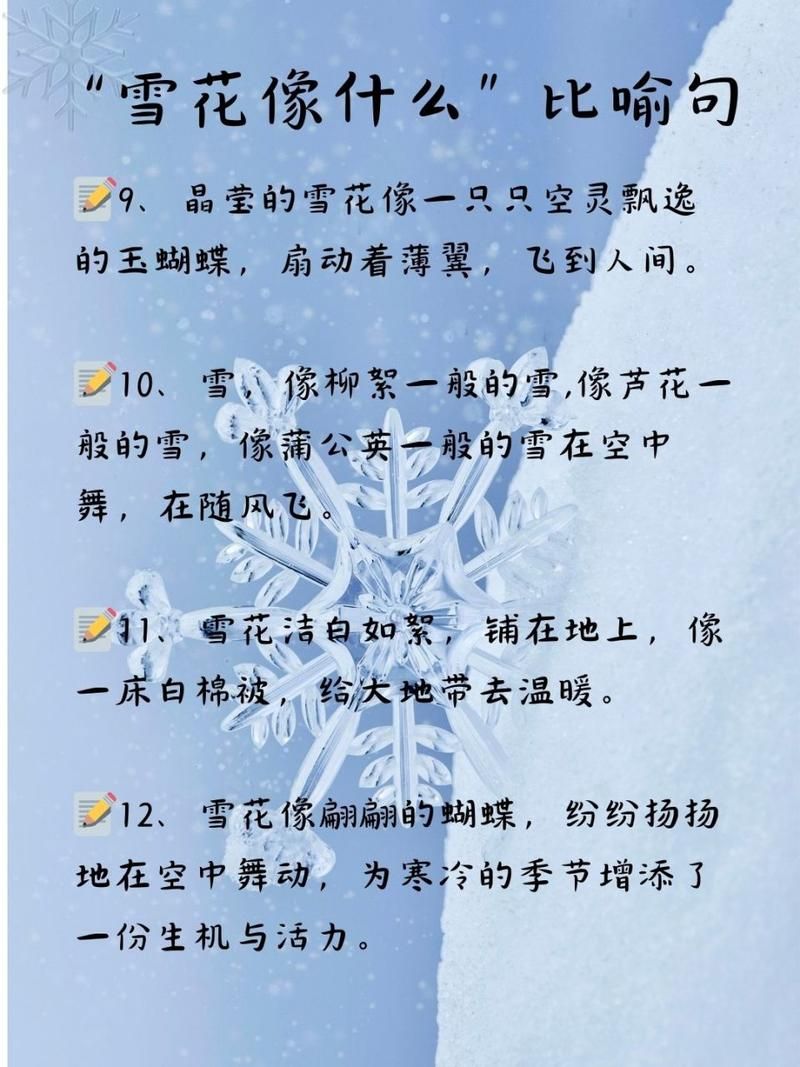 “雪花像什么”比喻句
9、 晶莹的雪花像一只只空灵飘逸
的玉蝴蝶，扇动着薄翼，飞到人间。
10、 雪，像柳絮一般的雪,像芦花一
般的雪，像蒲公英一般的雪在空中
舞，在随风飞。
11、 雪花洁白如絮，铺在地上，像
一床白棉被，给大地带去温暖。
12、 雪花像翩翩的蝴蝶，纷纷扬扬
地在空中舞动，为寒冷的季节增添了
一份生机与活力。